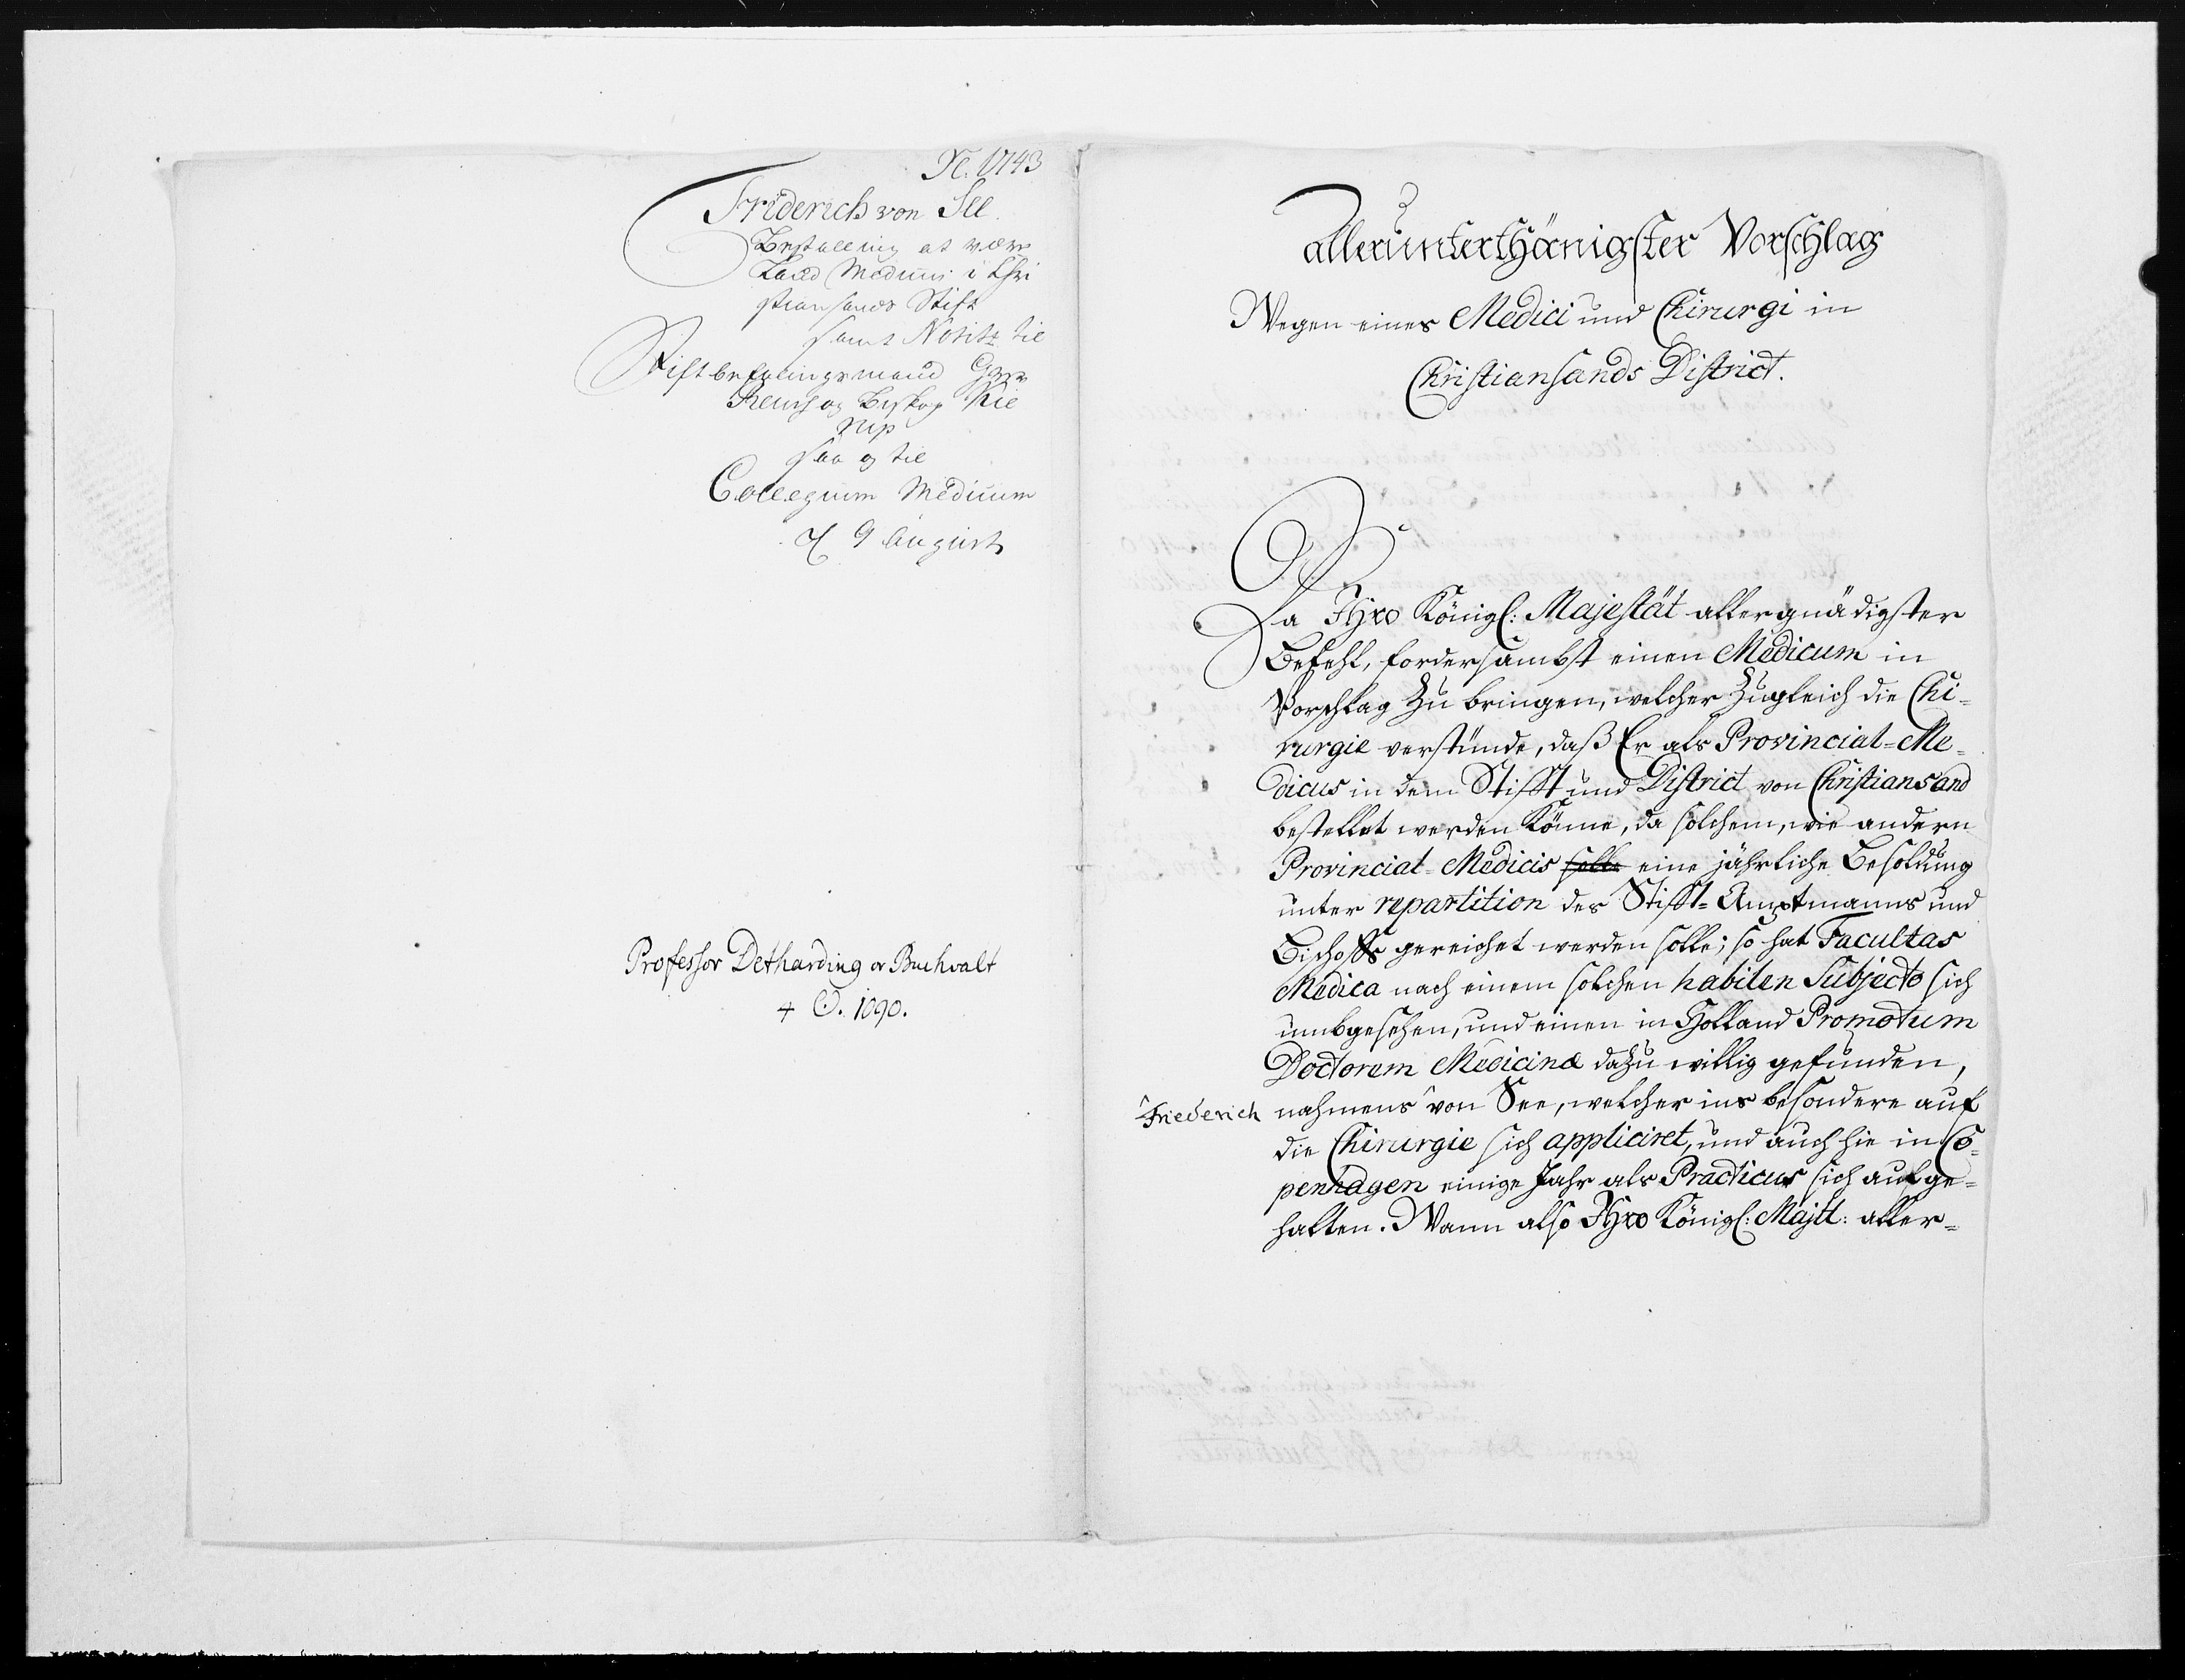 N. 1743
Friderich von See
Bestalling at være
Land Medicus i Chri
stiansands Stift
samt Notitz til
Stiftbefalingsmand
og Biskop
saa og til
Collegium Medicum
9 August
Professor Detharding or Buchvalt
4 O. 1090.
allerunterthänigster Vorschlag
Wegen eines Medici und Chirurgi in
Christiansands District.
Da Ihro Königl: Majestät allergnädigster
Befehl, fordersambst einen Medicum in
Vorschlag zu bringen, welcher zugleich die Chi-
rurgie verstünde, daß Er als Provincial-Me-
dicus in dem Stifft und District von Christiansand
bestellet werden könne, da solchem, wie andern
Provincial-Medicis solle eine jährliche Besoldung
unter repartition des Stifft-Amptmanns und
Bischoffs gereichet werden solle; so hat Facultas
Medica nach einem solchen habilen Subjecto sich
umbgesehen, und einen in Holland Promotum
Doctorem Medicinæ dazu willig gefunden,
Friederich nahmens von See, welcher ins besondere auf
die Chirurgie sich appliciret, und auch hie in Co-
penhagen einige Jahr als Practicus sich aufge-
halten. Wann also Ihro Königl: Majtt: aller-